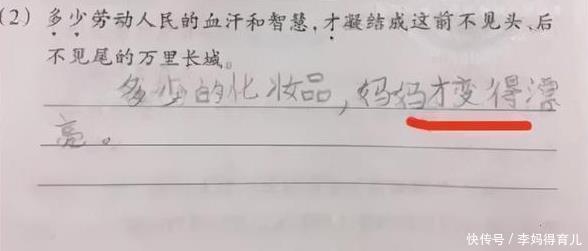 (2) 多少劳动人民的血汗和智慧,才凝结成这前不见头、后
不见尾的万里长城。
多少的化妆品，妈妈才变得漂
亮。
快传号／李妈得育儿